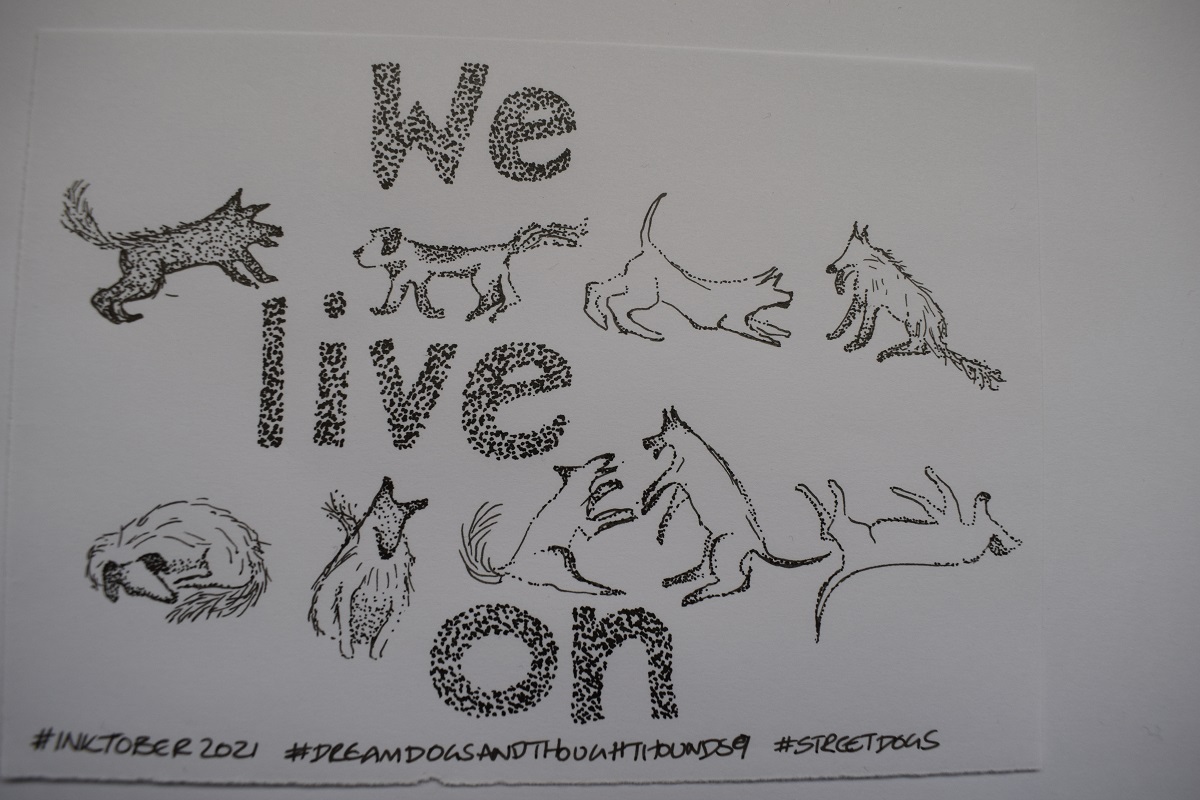 We
live
on
#INKTOBER 2021 #DREAMDOGSANDTHOUGHTHOUNDS9 #STREETDOGS